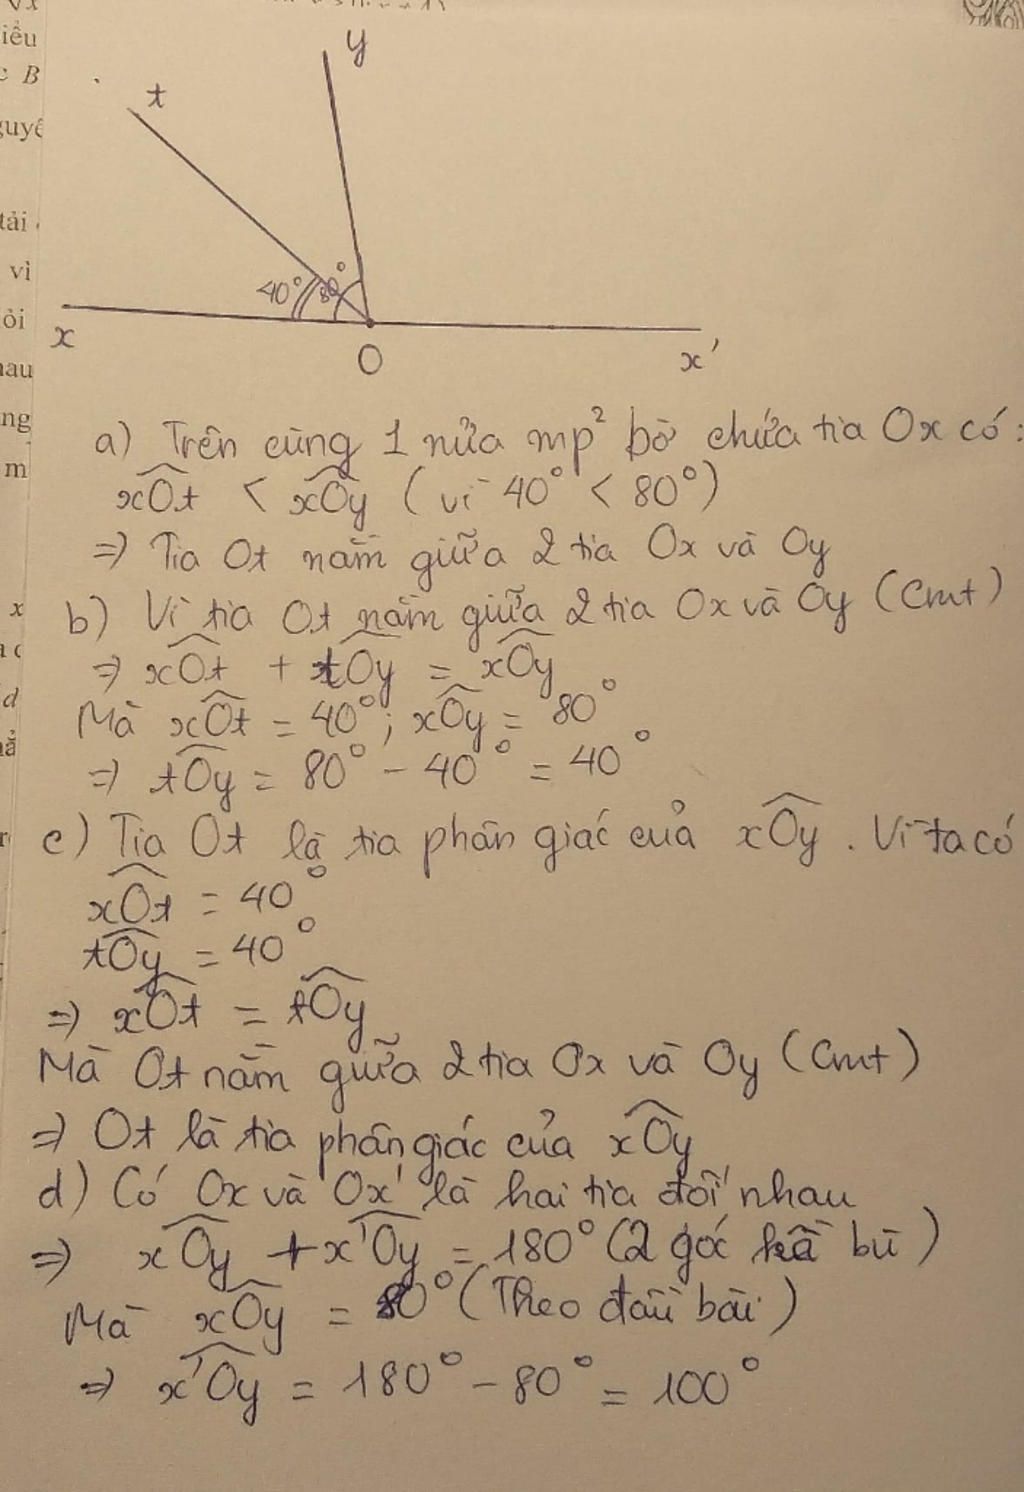 iểu
B
guyê
tải
vì
ỏi
hau
ng
m
x
d
y
t
40°
80°
x
O
x'
a) Trên cùng 1 nửa mp² bờ chứa tia Ox có:
xOt < xOy (vì 40° < 80°)
⇒ Tia Ot nằm giữa 2 tia Ox và Oy
b) Vì tia Ot nằm giữa 2 tia Ox và Oy (Cmt)
⇒ xOt + tOy = xOy
Mà xOt = 40°; xOy = 80°
⇒ tOy = 80° - 40° = 40°
c) Tia Ot là tia phân giác của xOy. Vì ta có
xOt = 40°
tOy = 40°
⇒ xOt = tOy
Mà Ot nằm giữa 2 tia Ox và Oy (Cmt)
⇒ Ot là tia phân giác của xOy
d) Có Ox và Ox' là hai tia đối nhau
⇒ xOy + x'Oy = 180° (2 góc kề bù)
Mà xOy = 80° (Theo đầu bài)
⇒ x'Oy = 180° - 80° = 100°